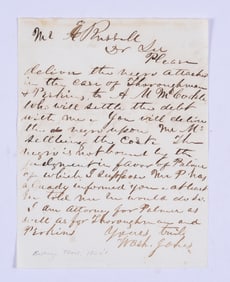 Mr Russell
Dr Sir
Please
deliver the negro attached
in the case of Thoroughman
& Perkins to A M McCorkle
who will settle the debt
with me. You will deliver
the negro upon Mr Mc
settling the costs. The
negro is not bound by the
judgment in favor of Palmer
of which I suppose Mr P has
already informed you. at least
he told me he would do so.
I am Attorney for Palmer as
well as for Thoroughman and
Perkins Yours truly
Wash. Jones